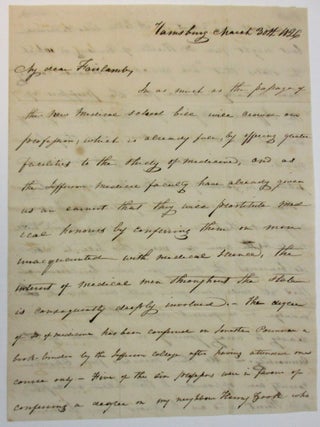 Harrisburg March 30th 1826
My dear
In as much as the passage of
the New Medical school bill will ruin our
profession, which is already full, by offering greater
facilities to the study of medicine, and as
the Jefferson Medical faculty have already given
us an earnest that they will prostitute med
ical honours by conferring them on men
unacquainted with medical science, the
interest of medical men throughout the state
is consequently deeply involved. - The degree
of Dr of medicine has been conferred on a
book binder by the Jefferson College after having attended one
course only - Five of the six professors were in favour of
conferring a degree on my neighbour Henry Zook who